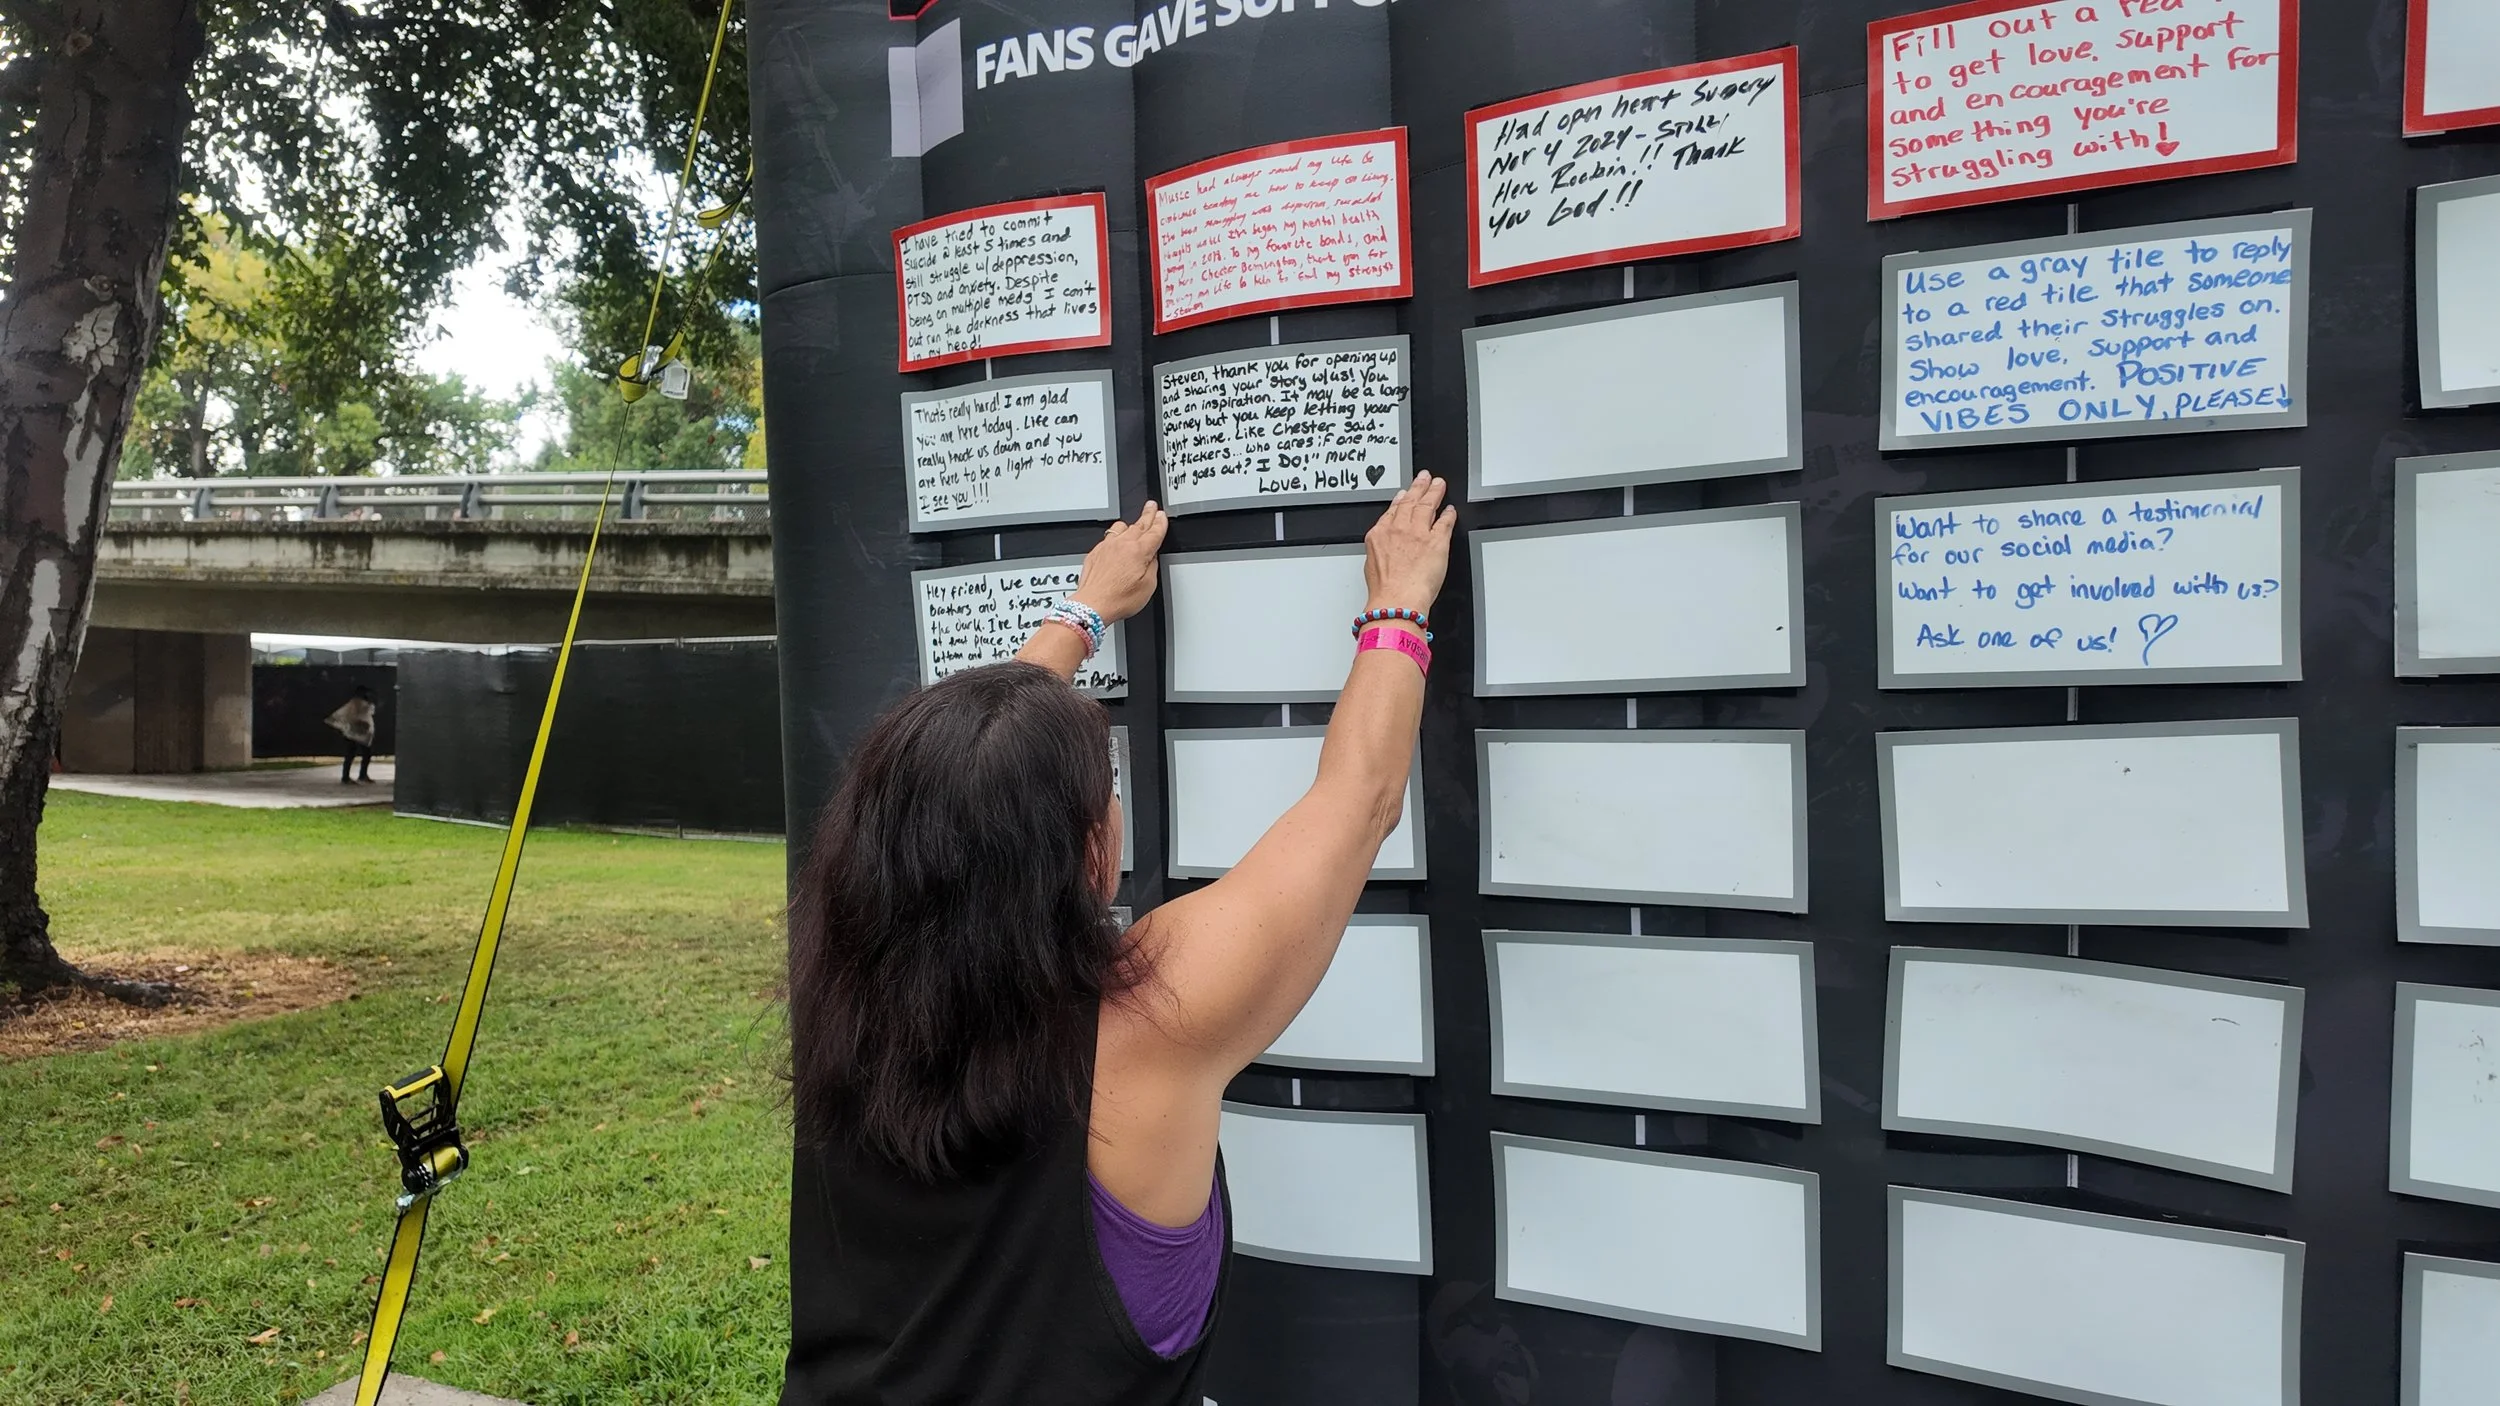 FANS GAVE SUPPO
I have tried to commit
suicide a least 5 times and
still struggle w/ deppression,
PTSD and anxiety. Despite
being on multiple meds I can't
out run the darkness that lives
in my head!
That's really hard! I am glad
you are here today. Life can
really knock us down and you
are here to be a light to others.
I see you!!!
Hey friend, we are a
Brothers and sisters
the dark. I've bee
at that place at
bottom and trie
but
Music had always saved my life &
continues teaching me how to keep on living.
I've been struggling with depression, suicidal
thoughts until I've began my mental health
in 2018. To my favorite bands, and
my hero Chester Bennington, thank you for
my life & help to find my strength
- Steven
Steven, thank you for opening up
and sharing your story w/us! You
are an inspiration. It may be a long
journey but you keep letting your
light shine. Like Chester said-
"if flickers... who cares if one more
light goes out? I DO!" MUCH
Love, Holly ♥
Had open heart Surgery
Nov 4 2024 - STILL
Here Rockin!! Thank
You God!!
Fill out a red
to get love, support
and encouragement for
something you're
struggling with!
Use a gray tile to reply
to a red tile that someone
shared their struggles on.
Show love, support and
encouragement. POSITIVE
VIBES ONLY, PLEASE!
Want to share a testimonial
for our social media?
Want to get involved with us?
Ask one of us! ♡
RSDAY